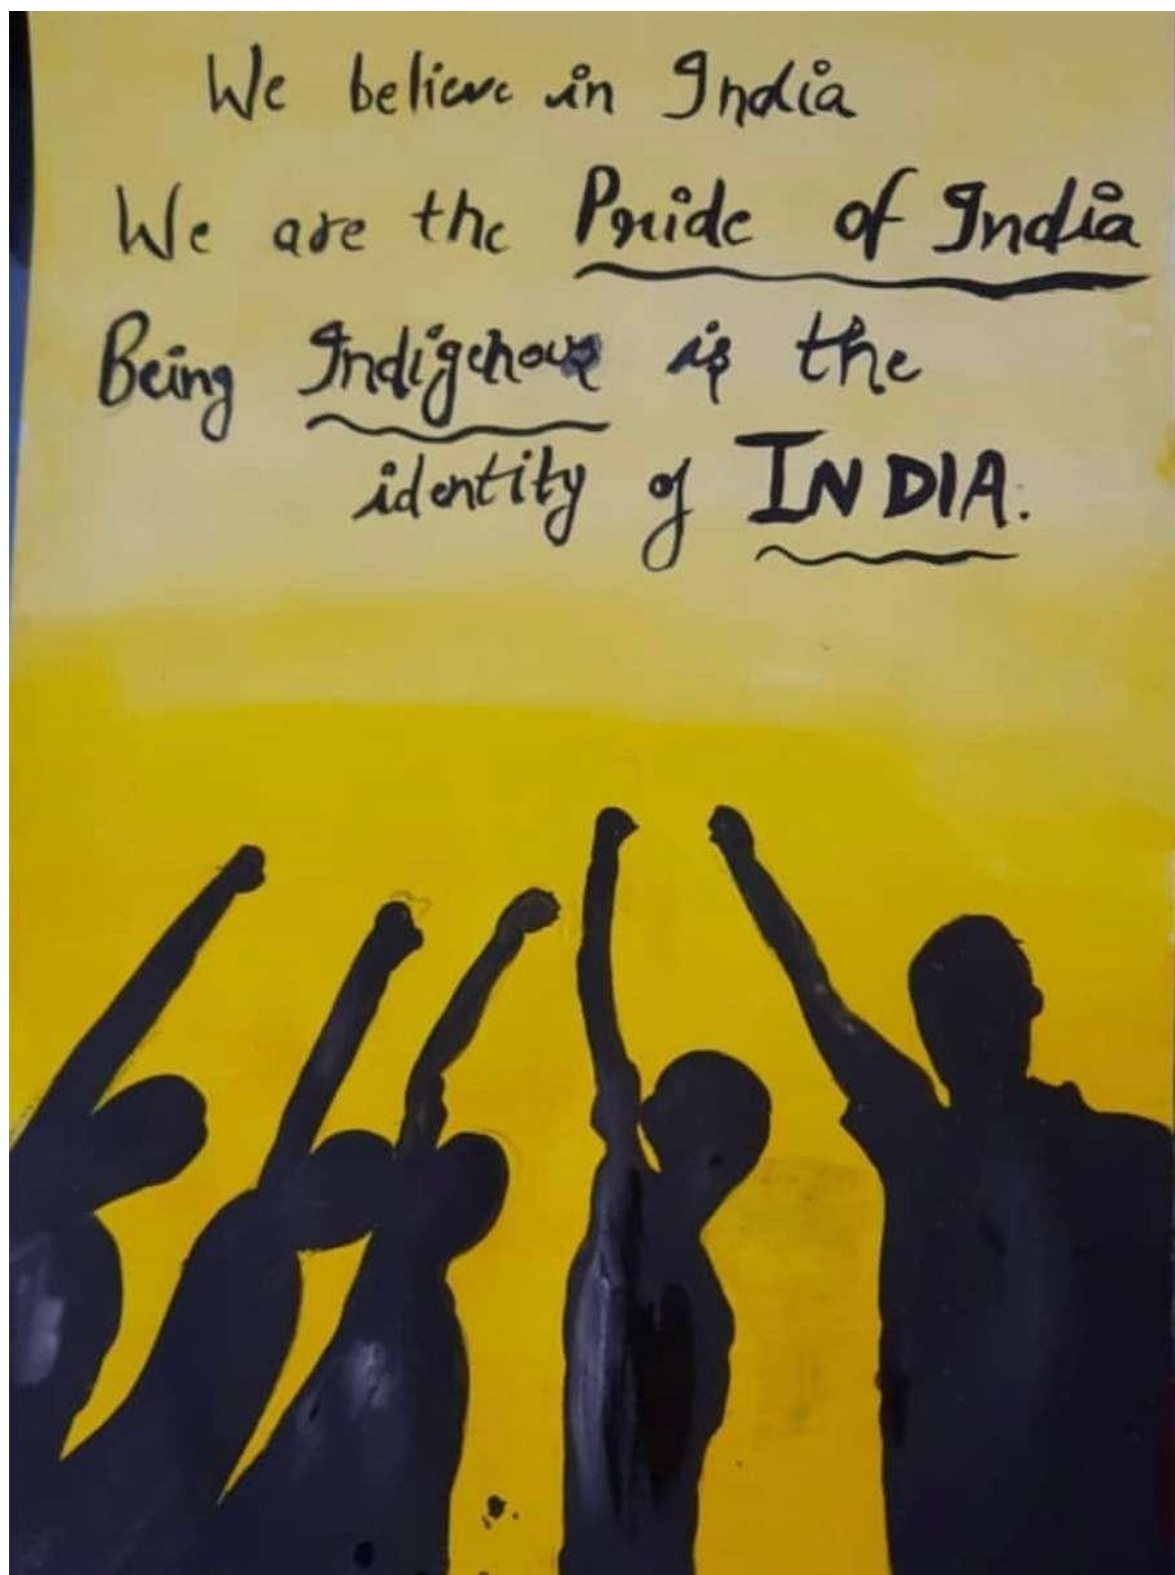 We believe in India
We are the Pride of India
Being Indigenous is the
identity of INDIA.